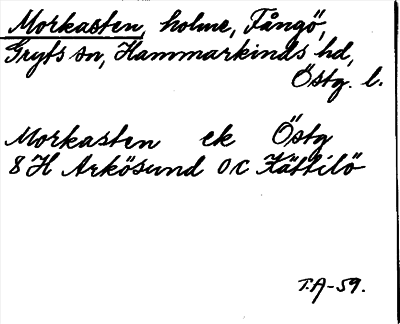 Morkasten, holme, Fångö,
Gryts sn, Hammarkinds hd,
Östg. l.
Morkasten ek Östg
8H Arkösund 0c Kättilö
T.A-59.